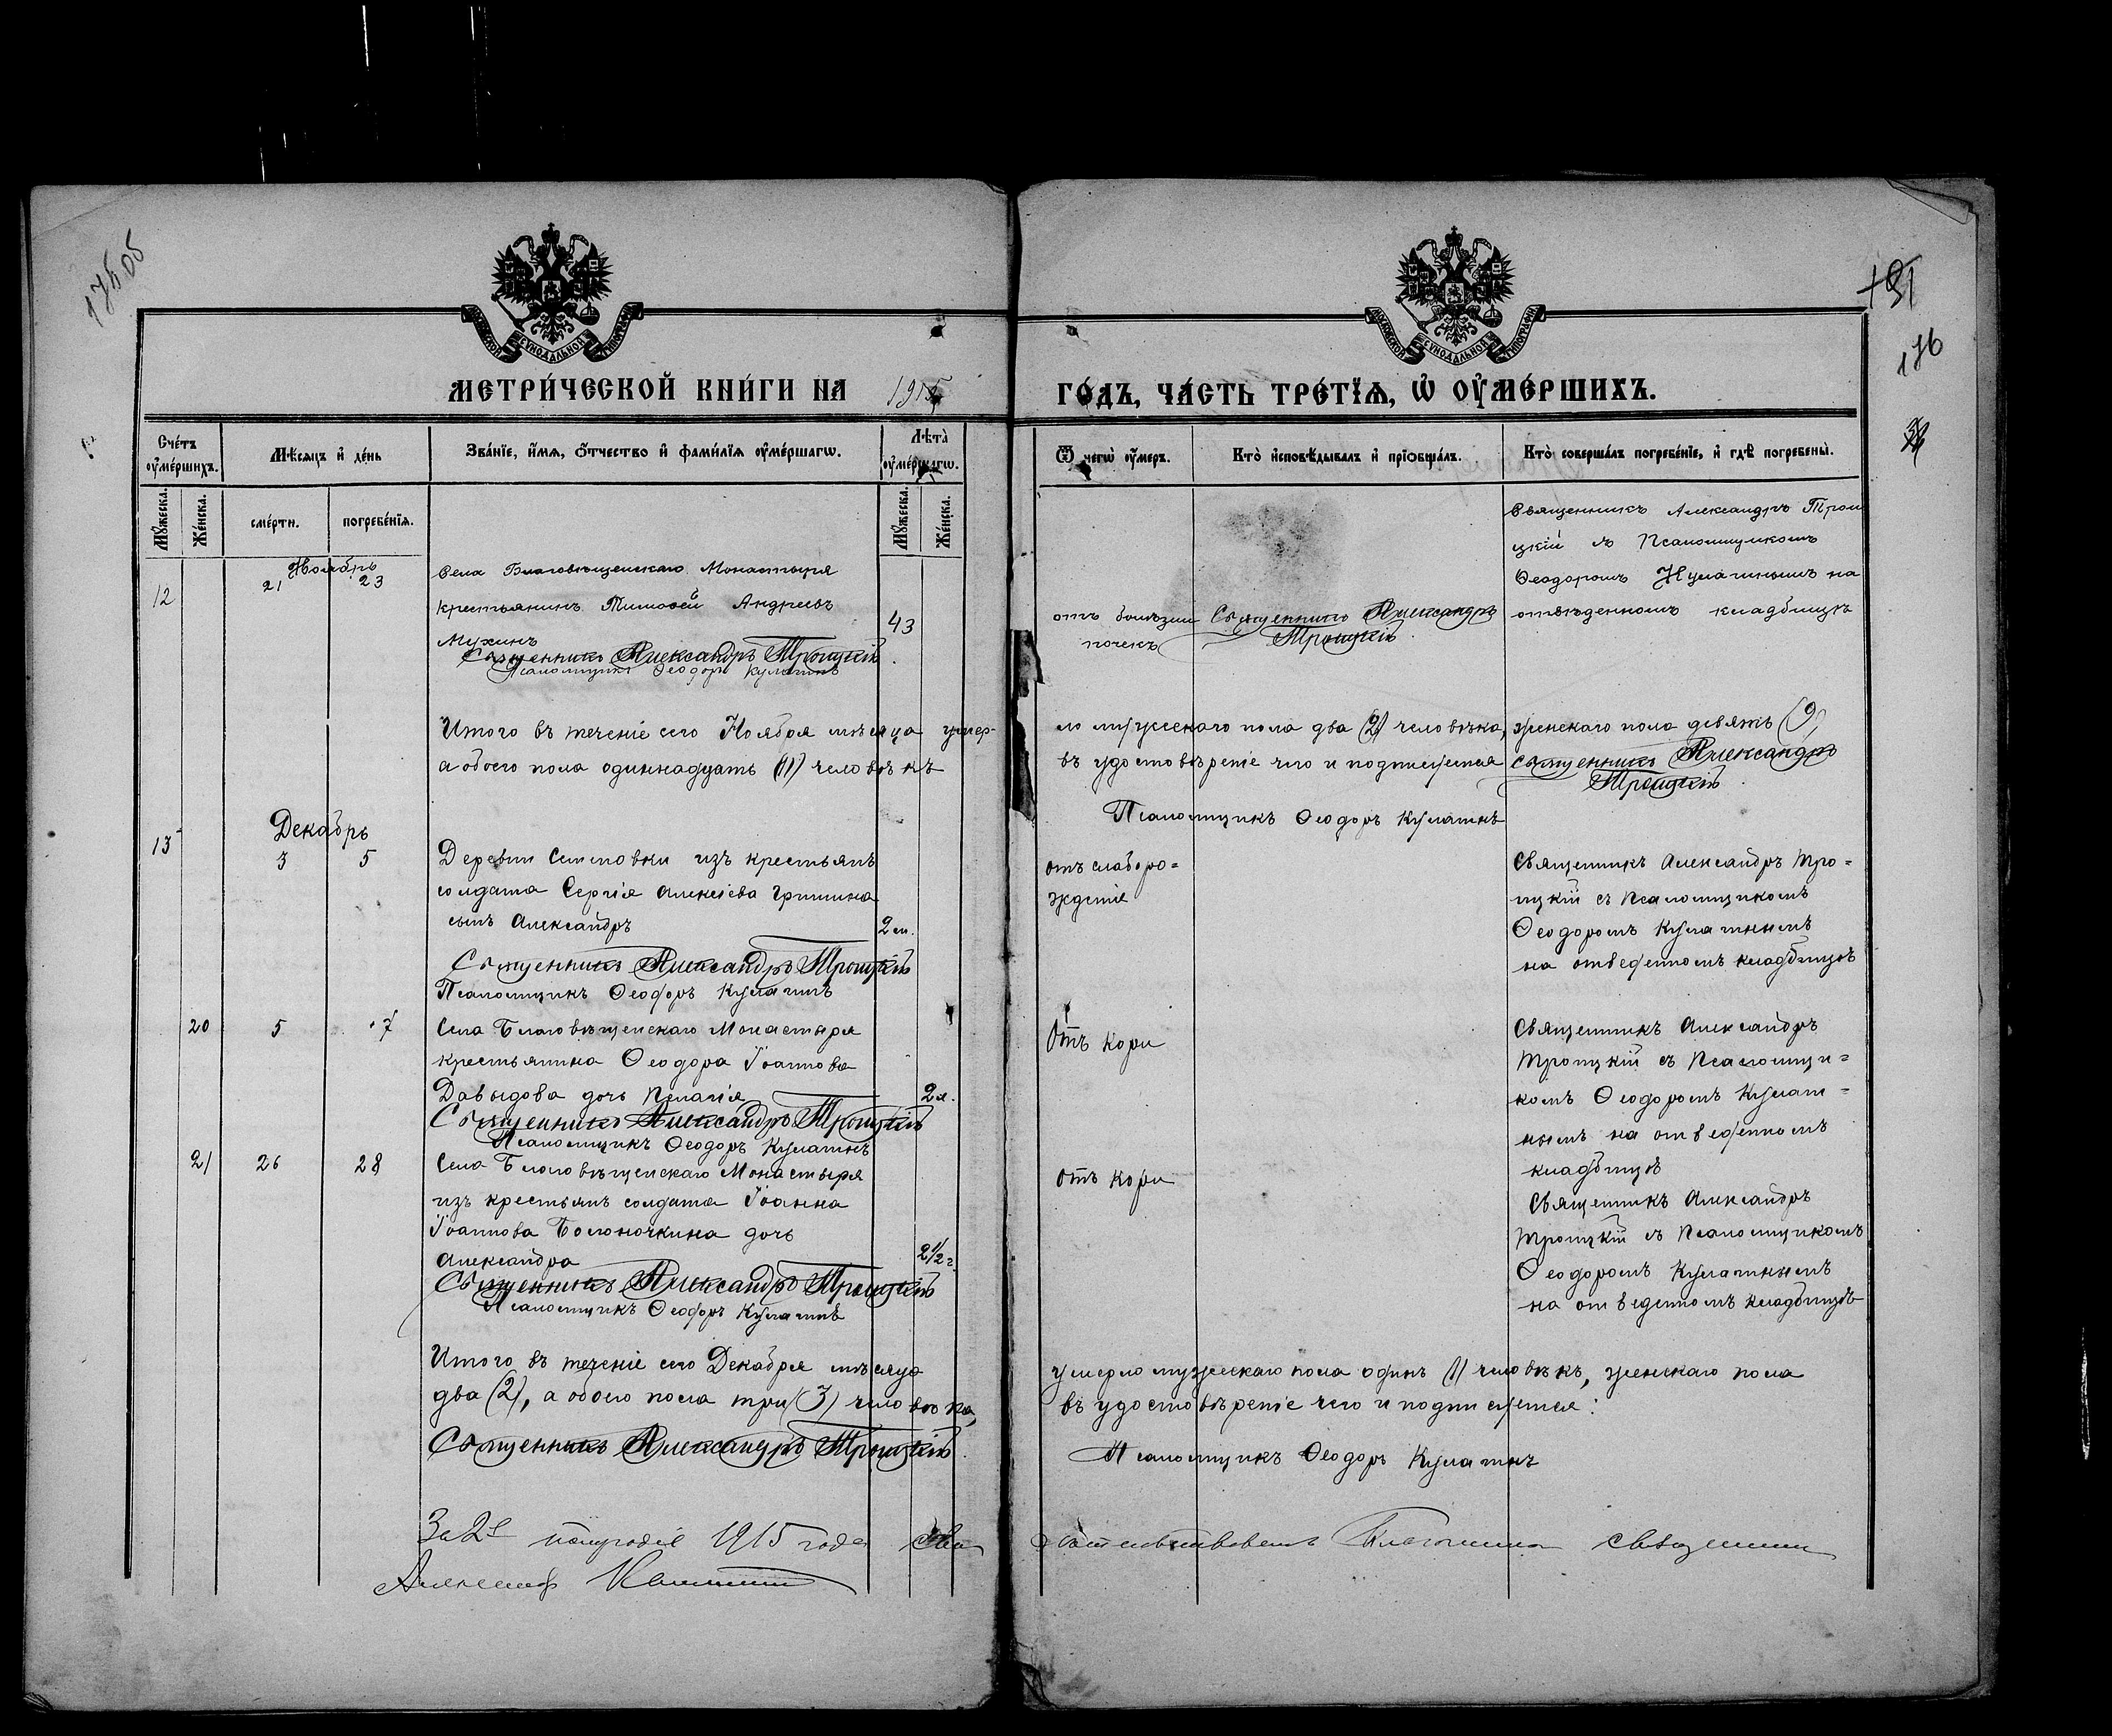 175 об
191
176
МОСКОВСКОЙ СУНОДАЛЬНОЙ ТИПОГРАФІИ
МОСКОВСКОЙ СУНОДАЛЬНОЙ ТИПОГРАФІИ
МЕТРИ́ЧЕСКОЙ КНИ́ГИ НА 1915 ГО́ДЪ, ЧА́СТЬ ТРЕ́ТЇѦ, Ѡ҆ ОУ҆МЕ́РШИХЪ.
Сче́тъ оу҆ме́ршихъ.
Мѣ́сѧцъ и҆ де́нь
Зва́нїе, и҆́мѧ, ѻ҆́тчество и҆ фамі́лїѧ оу҆ме́ршагѡ.
Лѣ̑та оу҆ме́ршагѡ.
Ѿ чегѡ̀ оу҆́меръ.
Кто̀ и҆сповѣ́дывалъ и҆ прїѡбща́лъ.
Кто̀ соверша́лъ погребе́нїе, и҆ гдѣ̀ погребены̀.
Мꙋ́жеска.
Же́нска.
сме́рти.
погребе́нїѧ.
Мꙋ́жеска.
Же́нска.
Ноябрь
12
21
23
Села Благовѣщенскаго Монастыря
крестьянинъ Тимоѳей Андреевъ
Мухинъ
43
Священникъ Александръ Троицкій
Псаломщикъ Ѳеодоръ Кулагинъ
отъ болѣзни
почекъ
Священникъ Александръ
Троицкій
Священникъ Александръ Трои
цкій съ Псаломщикомъ
Ѳеодоромъ Кулагинымъ на
отведенномъ кладбищѣ
Итого въ теченіе сего Ноября мѣсяца умер-
ло мужескаго пола два (2) человѣка, женскаго пола девять (9),
а обоего пола одиннадцать (11) человѣкъ
въ удостовѣреніе чего и подписуемся Священникъ Александръ
Троицкій
Псаломщикъ Ѳеодоръ Кулагинъ
Декабрь
13
3
5
Деревни
изъ крестьянъ
солдата Сергія Алексіева Гришина
сынъ Александръ
2 м.
Священникъ Александръ Троицкій
Псаломщикъ Ѳеодоръ Кулагинъ
отъ слаборо=
жденія
Священникъ Александръ Тро=
ицкій съ Псаломщикомъ
Ѳеодоромъ Кулагинымъ
на отведенномъ кладбищѣ
20
5
7
Села Благовѣщенскаго Монастыря
крестьянина Ѳеодора Іоаннова
Давыдова дочь Пелагія
2 л.
Священникъ Александръ Троицкій
Псаломщикъ Ѳеодоръ Кулагинъ
Отъ кори
Священникъ Александръ
Троицкій съ Псаломщи=
комъ Ѳеодоромъ Кулаги=
нымъ на отведенномъ
кладбищѣ
21
26
28
Села Благовѣщенскаго Монастыря
изъ крестьянъ солдата Іоанна
Іоаннова Болоночкина дочь
Александра
2½ г.
Священникъ Александръ Троицкій
Псаломщикъ Ѳеодоръ Кулагинъ
отъ кори
Священникъ Александръ
Троицкій съ Псаломщикомъ
Ѳеодоромъ Кулагинымъ
на отведенномъ кладбищѣ
Итого въ теченіе сего Декабря мѣсяца
умерло мужескаго пола одинъ (1) человѣкъ, женскаго пола
два (2), а обоего пола три (3) человѣка,
въ удостовѣреніе чего и подписуемся:
Священникъ Александръ Троицкій
Псаломщикъ Ѳеодоръ Кулагинъ
За 2е полугодіе 1915 года свидѣтельствовалъ Благочинный священникъ
Александръ